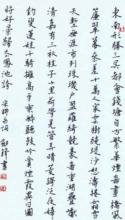 東南形勝三吳都會錢塘自古繁華煙柳畫橋風
簾翠幕參差十萬人家雲樹繞堤沙怒濤卷霜雪
天塹無涯市列珠璣戶盈羅綺競豪奢重湖疊巘清嘉
有三秋桂子十里荷花羌管弄晴菱歌泛夜嬉嬉
釣叟蓮娃千騎擁高牙乘醉聽簫鼓吟賞煙霞異日圖將
好景歸去鳳池誇 宋柳永詞 書